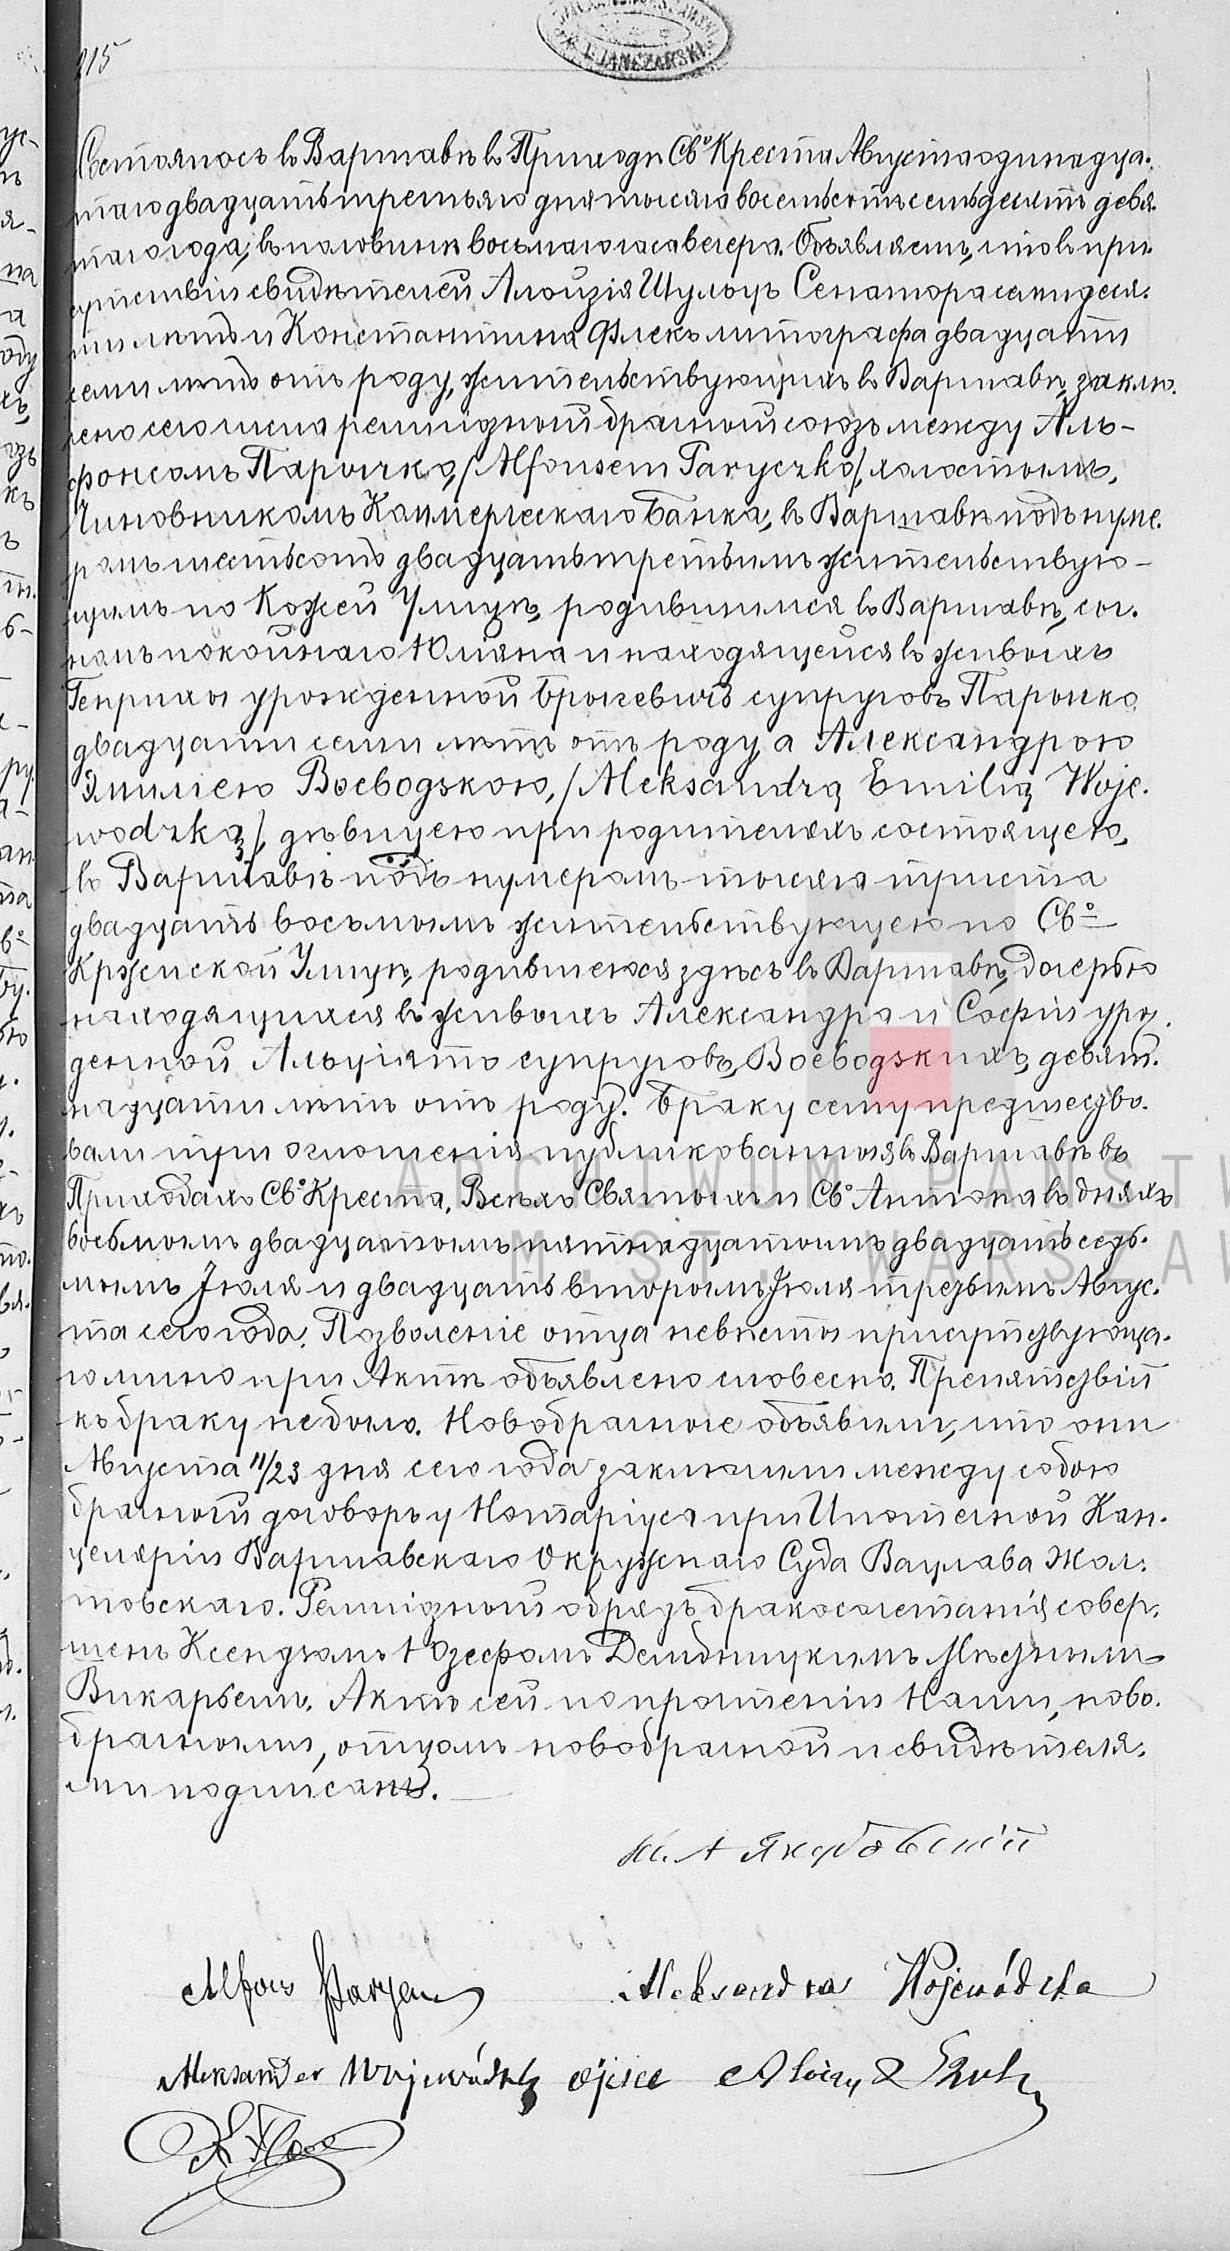 215
Состоялось въ Варшавѣ въ Приходѣ Св.º Креста Августа одинадца-
таго двадцать третьяго дня тысяча восемьсотъ семьдесятъ девя-
таго года, въ половинѣ восьмаго часа вечера. Объявляемъ, что въ при-
сутствіи свидѣтелей Алоизія Шульцъ Сенатора семидеся-
ти лѣтъ и Константина Флекъ литографа двадцати
семи лѣтъ отъ роду, жительствующихъ въ Варшавѣ, заклю-
чено сего числа религіозный брачный союзъ между Аль-
фонсомъ Парычко, /Alfonsem Paryczko/, холостымъ,
Чиновникомъ Коммерческаго Банка, въ Варшавѣ подъ нуме-
ромъ шестьсотъ двадцать третьимъ жительствую-
щимъ по Кожей Улицѣ, родившимся въ Варшавѣ, сы-
номъ покойнаго Юліяна и находящейся въ живыхъ
Генрихи урожденной Брычевичъ супруговъ Парычко
двадцати семи лѣтъ отъ роду, а Александрою
Эмиліею Воеводзкою, /Aleksandrą Emilią Woje-
wodzką/, дѣвицею при родителяхъ состоящею,
въ Варшавѣ подъ нумеромъ тысяча триста
двадцать восьмымъ жительствующею по Св.º
Кржиской Улицѣ, родившеюся здѣсь въ Варшавѣ, дочерью
находящихся въ живыхъ Александра и Софіи урож-
денной супруговъ Воеводзкихъ, девят-
надцати лѣтъ отъ роду. Браку сему предшество-
вали три оглошенія публикованныя въ Варшавѣ въ
Приходахъ Св.º Креста, Всѣхъ Святыхъ и Св.º Антона въ дняхъ
восьмомъ двадцатомъ пятнадцатомъ двадцать седь-
момъ Іюля и двадцать второмъ Іюля третьемъ Авгус-
та сего года. Позволеніе отца невѣсты присутствующа-
го лично при Актѣ объявлено словесно. Препятствій
къ браку небыло. Новобрачные объявили, что они
Августа 11/23 дня сего года заключили между собою
брачный договоръ у Нотаріуса при Ипотечной Кан-
целяріи Варшавскаго Окружнаго Суда Вацлава Жол-
товскаго. Религіозный обрядъ бракосочетанія совер-
шенъ Ксендзомъ Юзефомъ Дембницкимъ Мѣстнымъ
Викарьемъ. Актъ сей по прочтеніи Нами, ново-
брачными, отцомъ новобрачной и свидѣтеля-
ми подписанъ.
Кс. А Якубовскій
Alfons Aleksandra Wojewódzka
Aleksander Wojewódzki ojciec Aloizy Szulc
ARCHIWUM PAŃSTW
M.ST. WARSZAW